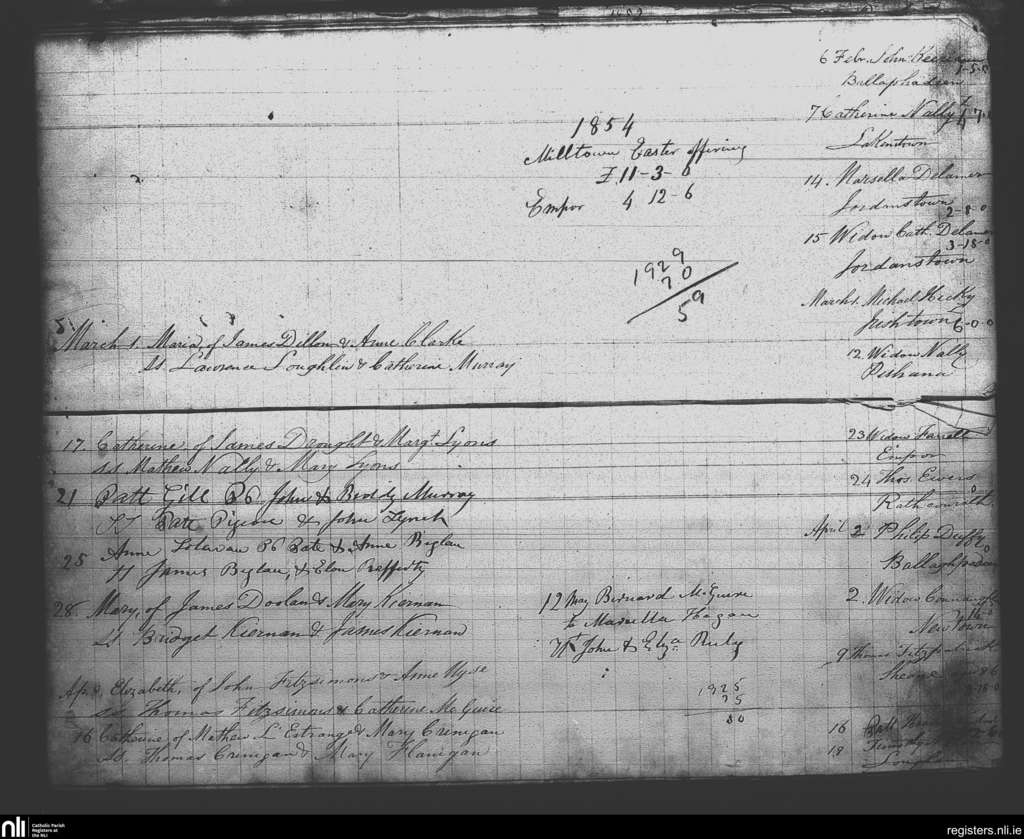 1854
Milltown Easter offiring
£ 11-3-0
Empor 4 12-6
1929
70
59
March 1. Maria, of James Dillon & Anne Clarke
Ss. Lawrence Loughlin & Catherine Murray
17. Catherine of James Drought & Margt Lyons
ss Mathew Nally & Mary Lyons
21 Patt Gill John & Biddy Murray
Patt & John Lynch
25 Anne Pate & Anne Beglan
James Beglan, & Elen
28. Mary, of James Doolan & Mary Kiernan
Ss Bridget Kiernan & James Kiernan
Ap. Elizabeth, of John Fitzsimons & Anne Wyse
ss. Thomas Fitzsimons & Catherine McGuire
16 Catherine of Mathew L'Estrange & Mary Crenigan
Ss. Thomas Crenigan & Mary Flanigan
12 May Bernard McGuire
to Marcella Hagan
Wt John & Eliza
1925
75
50
6 Febr. John
7 Catherine Nally
Lakenstown
14. Marsella Delamer
Jordanstown
2-8-0
15 Widow Cath. Delamer
3-18-0
Jordanstown
March 1. Michael Hicky
Irishtown 6-0-0
12. Widow Nally
Pishana
23 Widow Farrell
Empor
24 Thos. Ewers
Rathconrath
April 2 Philip Duffy
2. Widow
Newtown
9 Thomas Fitzpatrick
16 Patt
18
NLI
Catholic Parish
Registers at
the NLI
registers.nli.ie